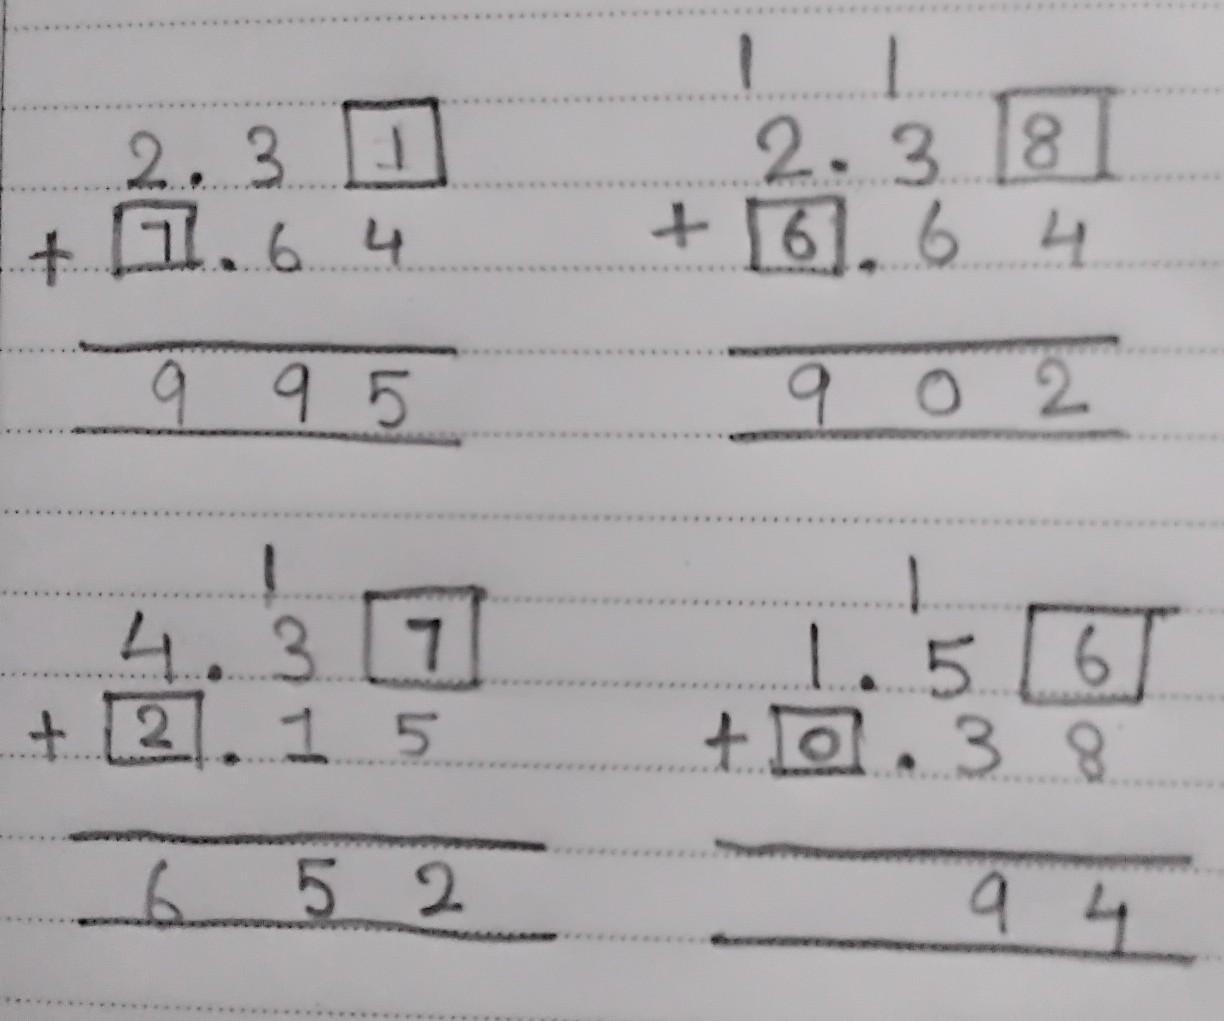 2.3 1
+ 7.6 4
9 9 5
1 1
2.3 8
+ 6.6 4
9 0 2
1
4.3 7
+ 2.1 5
6 5 2
1
1.5 6
+ 0.3 8
9 4